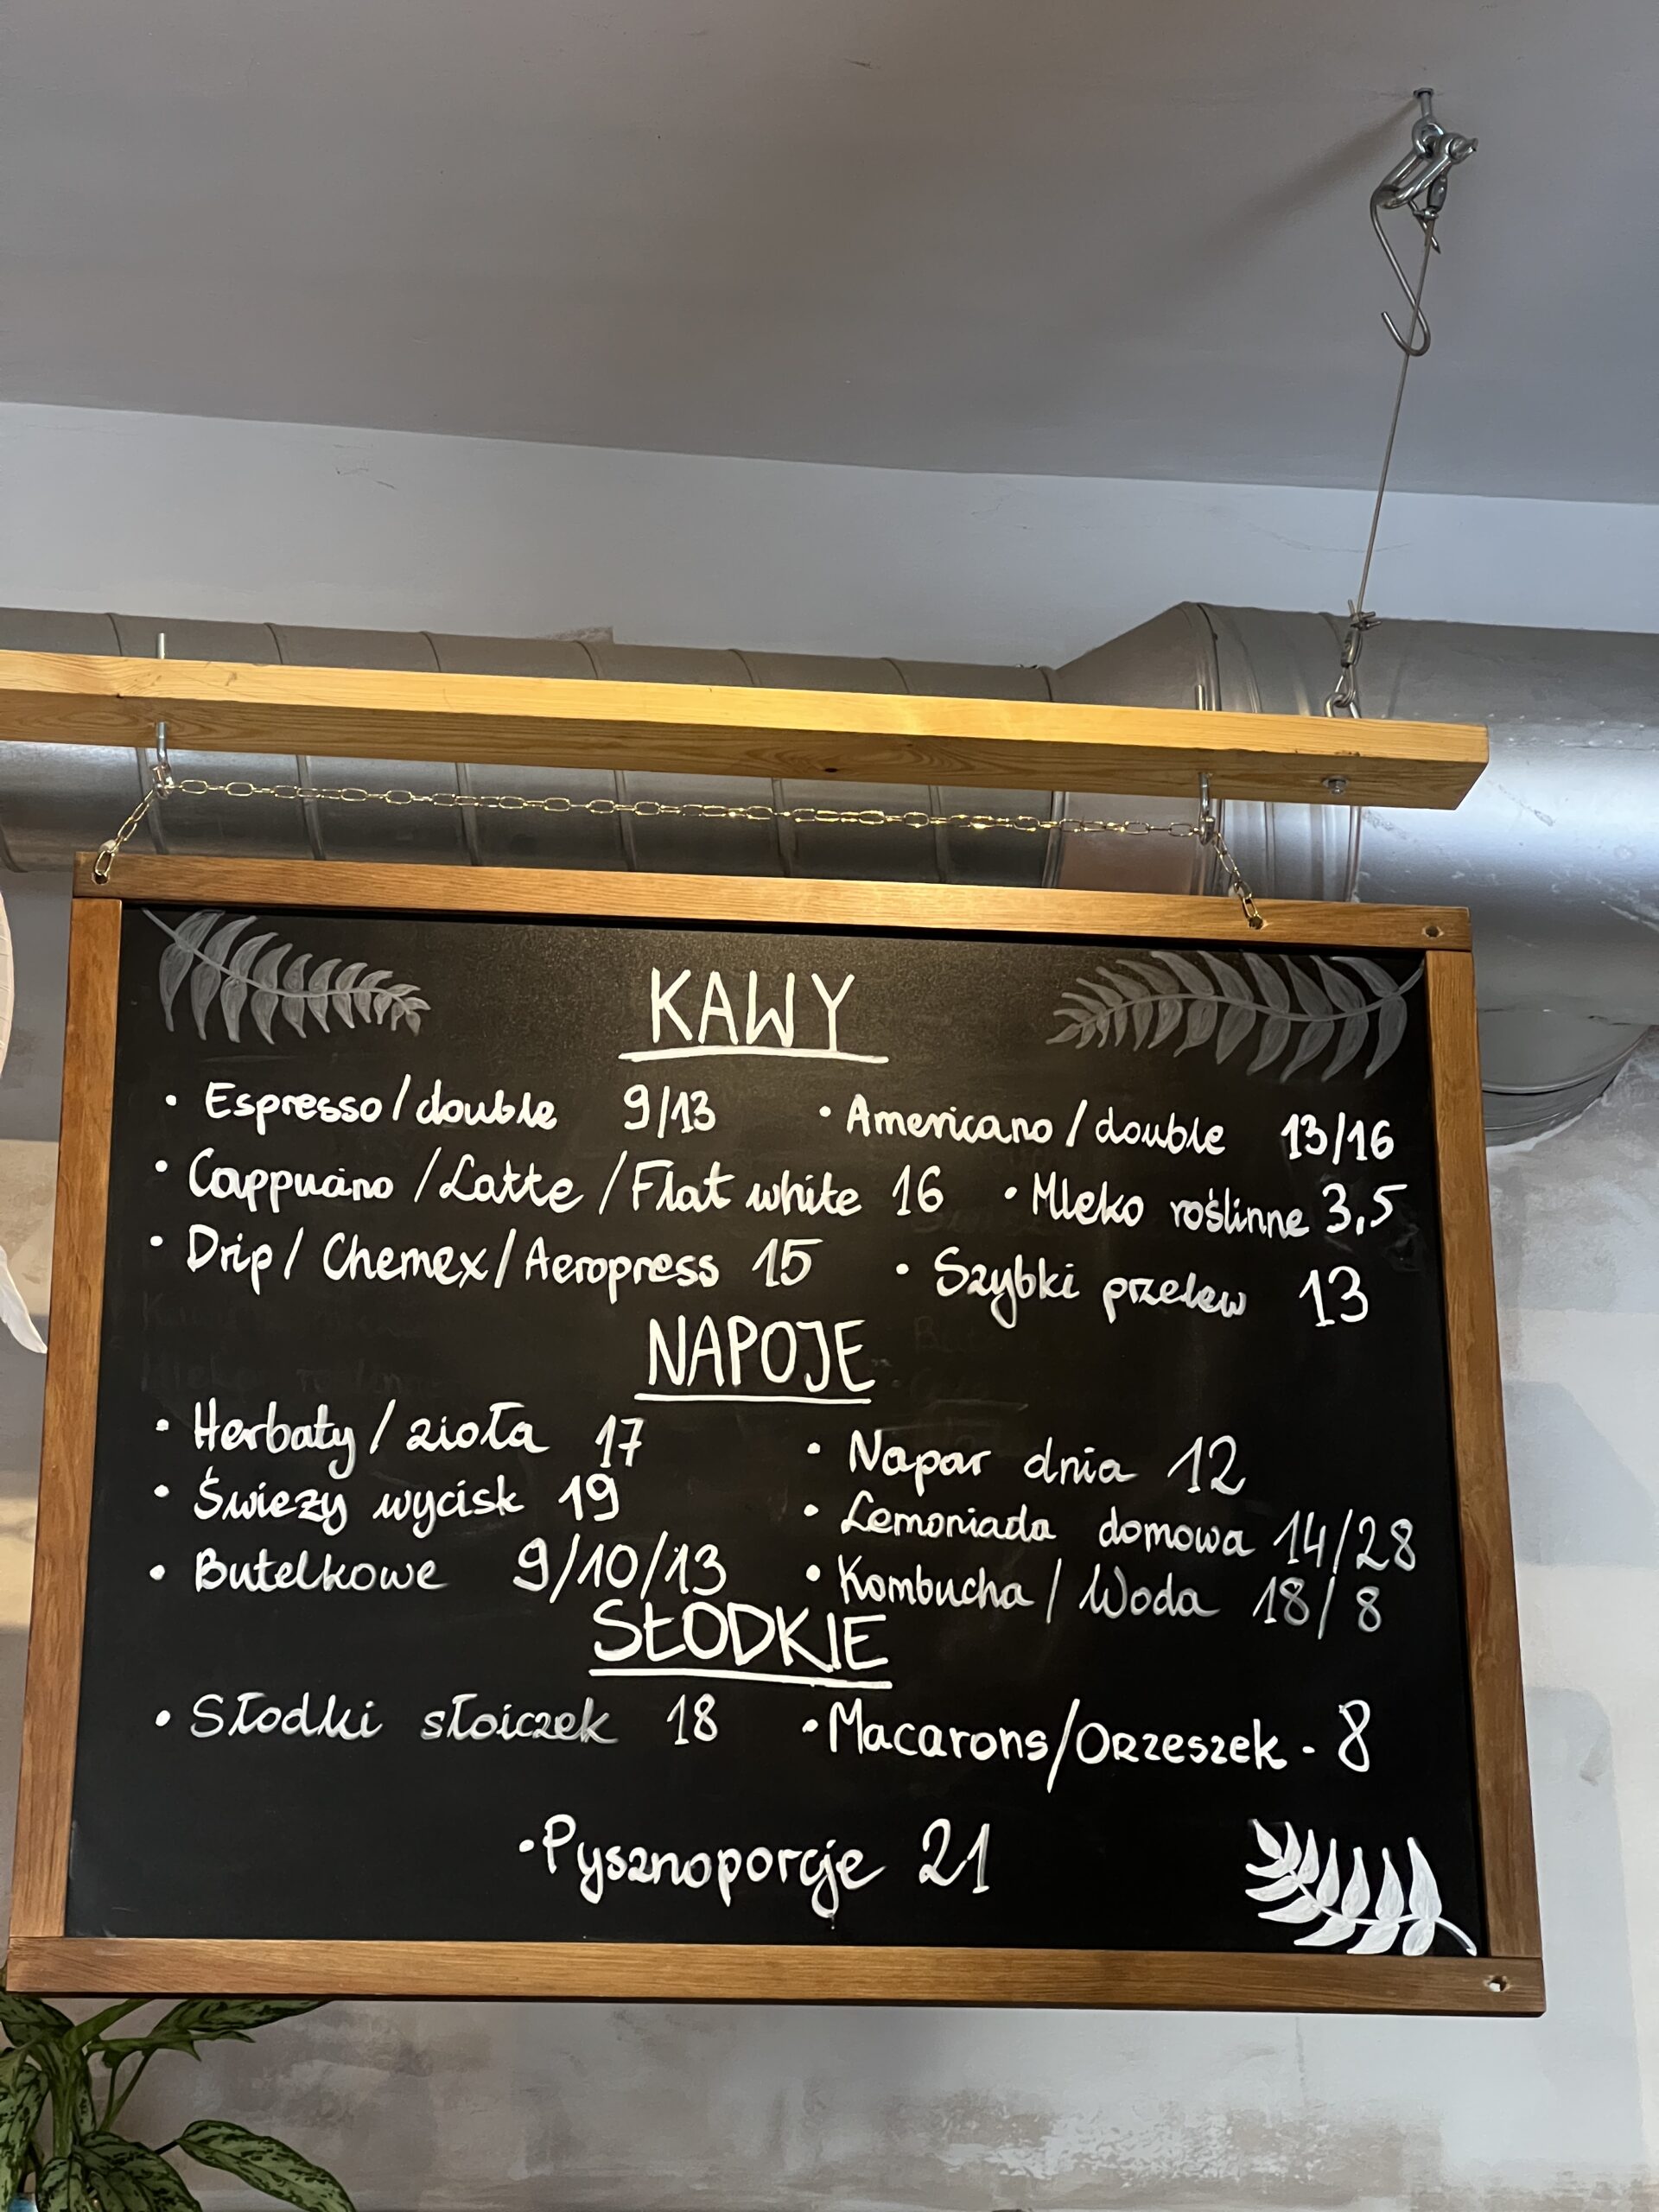 KAWY
• Espresso/double 9/13 • Americano/double 13/16
• Cappucino/Latte/Flat white 16 • Mleko roślinne 3,5
• Drip/Chemex/Aeropress 15 • Szybki przelew 13
NAPOJE
• Herbaty/zioła 17 • Napar dnia 12
• Świeży wycisk 19 • Lemoniada domowa 14/28
• Butelkowe 9/10/13 • Kombucha/Woda 18/8
SŁODKIE
• Słodki słoiczek 18 • Macarons/Orzeszek - 8
• Pysznoporcje 21